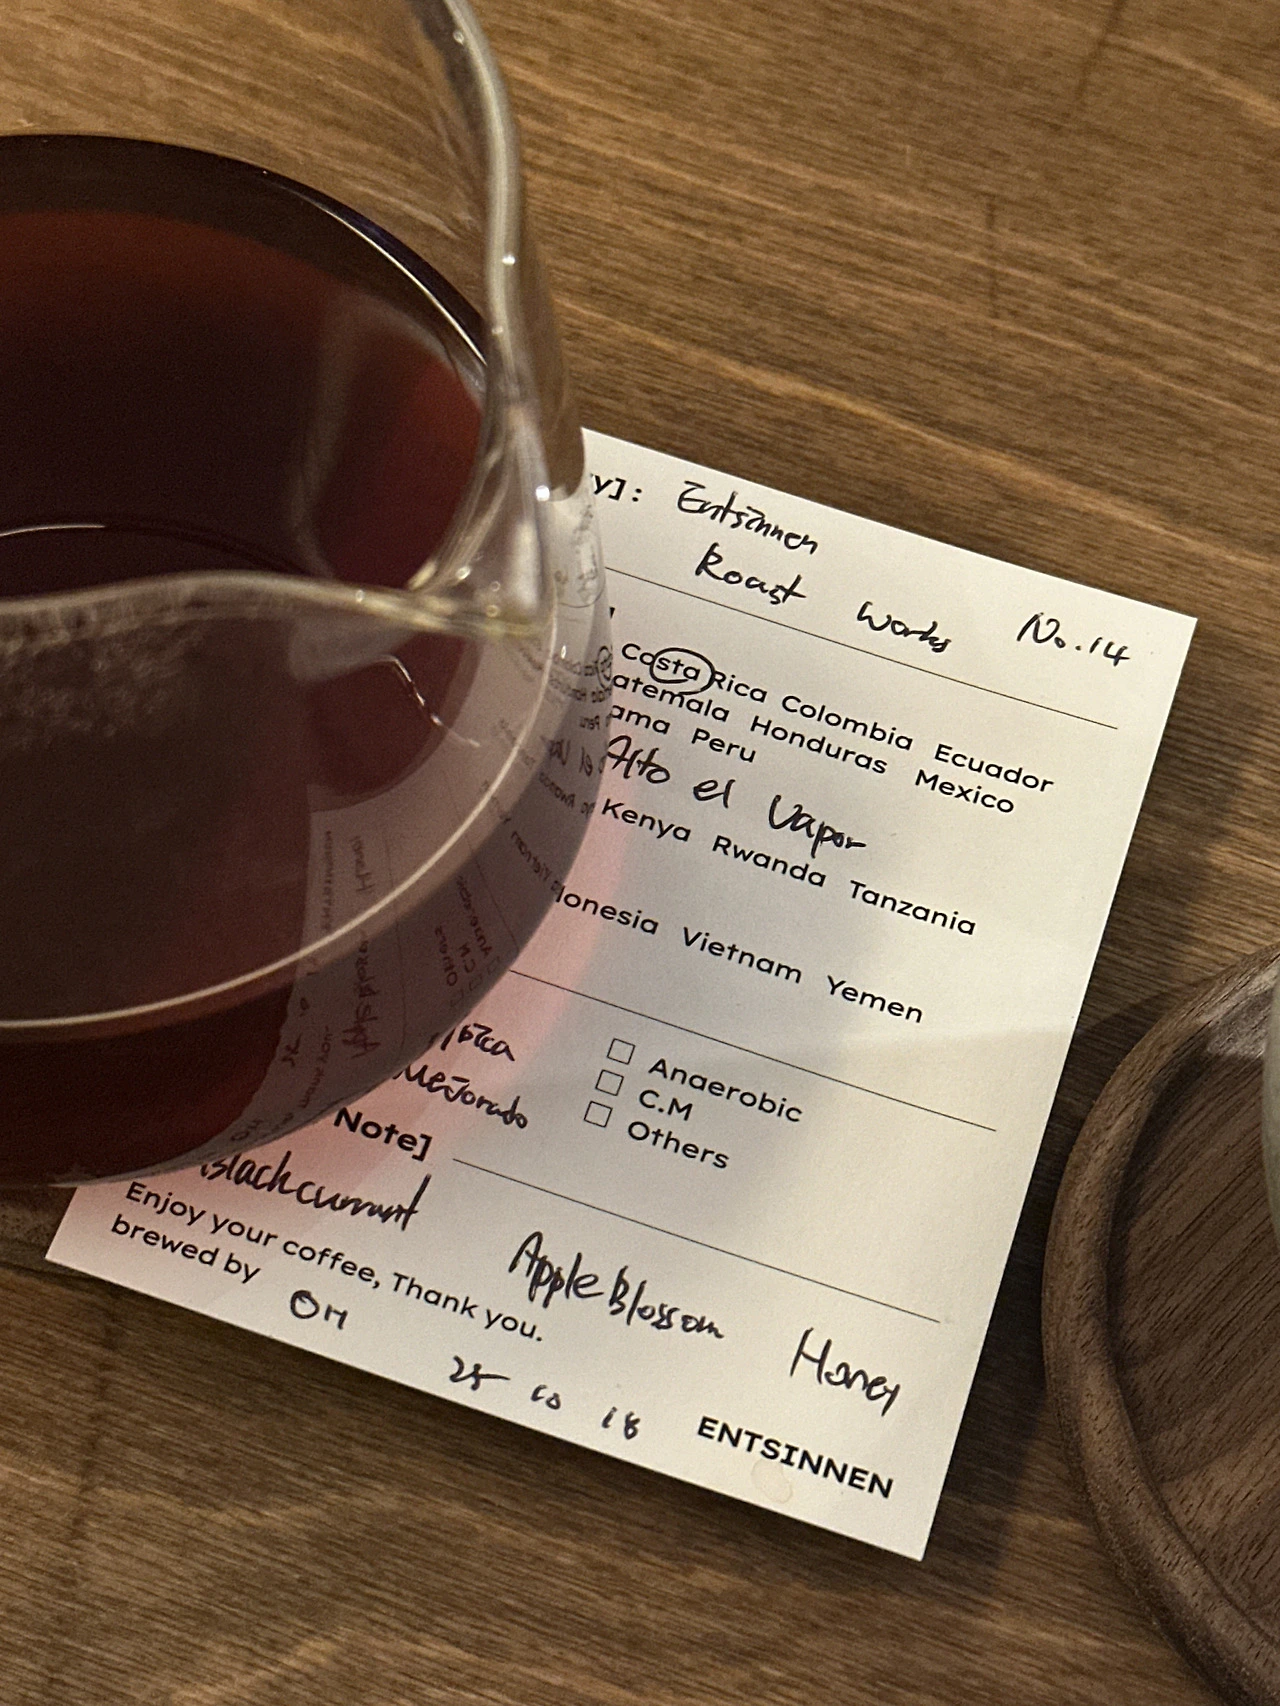 y]: Entsinnen
Roast Works No.14
Costa Rica Colombia Ecuador
atemala Honduras Mexico
ama Peru
Alto el Vapor
Kenya Rwanda Tanzania
donesia Vietnam Yemen
Anaerobic
Mejorado C.M
Others
Note]
Blackcurrant Apple Blossom Honey
Enjoy your coffee, Thank you.
brewed by OH
25 10 18
ENTSINNEN